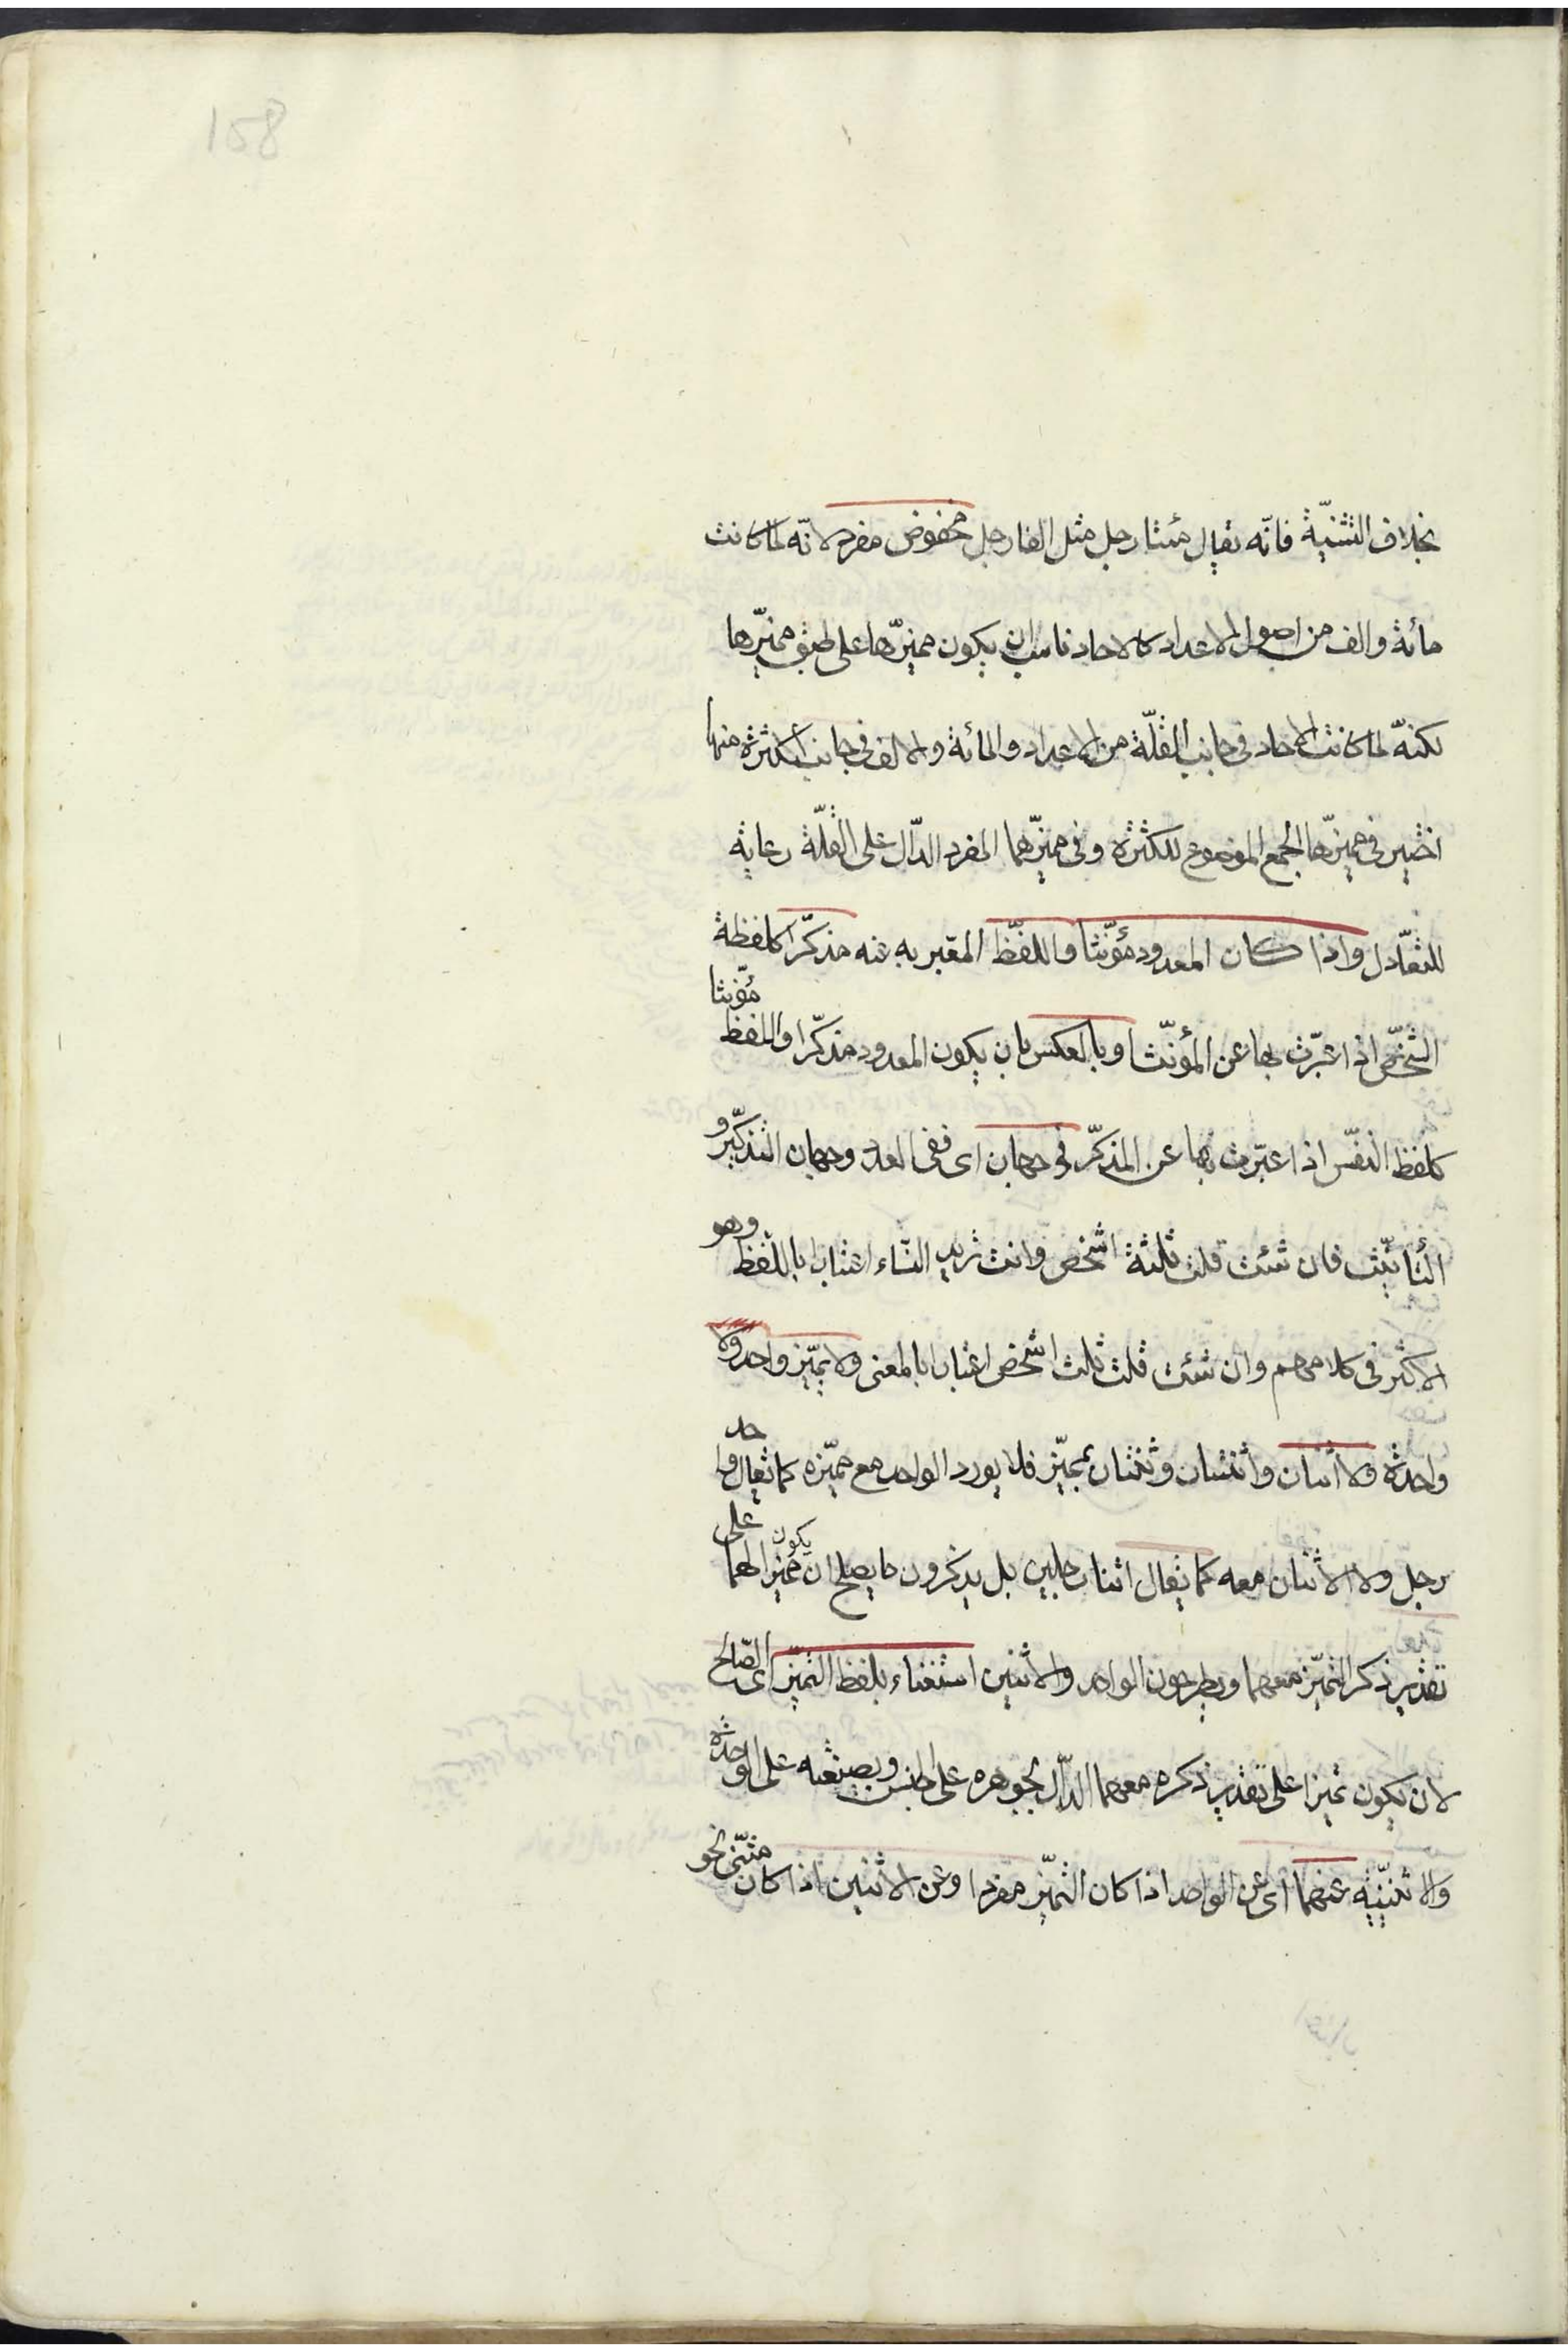 158
بخلاف التثنية فانّه يقال مئتا رجل مثل الفا رجل مخفوض مفرد لانّه لمّا كانت
مائة والف من اصول الاعداد كالاحاد ناسب ان يكون مميّزها على طبق مميّزها
لكنّه لما كانت الاحاد فى جانب القلّة من الاعداد والمائة والالف فى جانب الكثرة منها
اختير فى مميّزها الجمع الموضوع للكثرة وفى مميّزهما المفرد الدّال على القلّة رعاية
للتعّادل واذا كان المعدود مؤنّثا واللفّظ المعّبر به عنه مذكّرا كلفظة
الشّخص اذا عبّرت بها عن المؤنّث او بالعكس بان يكون المعدود مذكّرا واللفظ مؤنّثا
كلفظ النفّس اذا عبّرت بها عن المذكّر فوجهان اى ففى العدد وجهان التذكّير و
التأنيّث فان شئت قلت ثلثة اشخص وانت تريد النّساء اعتبارا باللّفظ وهو
الاكثر فى كلامهم وان شئت قلت ثلث اشخص اعتبارا بالمعنى ولا يميّز واحد ولا
واحدة ولا اثنان واثنتان وثنتان بمميّز فلا يورد الواحد مع مميّزه كما يقال واحد
رجل ولا الاثنان معه كما يقال اثنا رجلين بل يذكرون ما يصلح ان يكون مميّزا لهما على
تقدير ذكر التميّز معهما ويطرحون الواحد والاثنين استغناء بلفظ التميّز اى الصّالح
لان يكون تميزا على تقدير ذكره معهما الدّال بجوهره على الجنس وبصيغته على الوحدة
والا تثنيّة عنهما اى عن الواحد اذا كان التميّز مفردا وعن الاثنين اذا كان مثنّى نحو